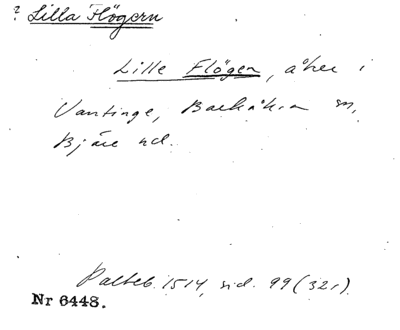 ? Lilla Flögern
Lille Flögen, åker i
Vantinge, Barkåkra sn,
Bjäre hd.
Palteb. 1514, sid. 99 (321).
Nr 6448.